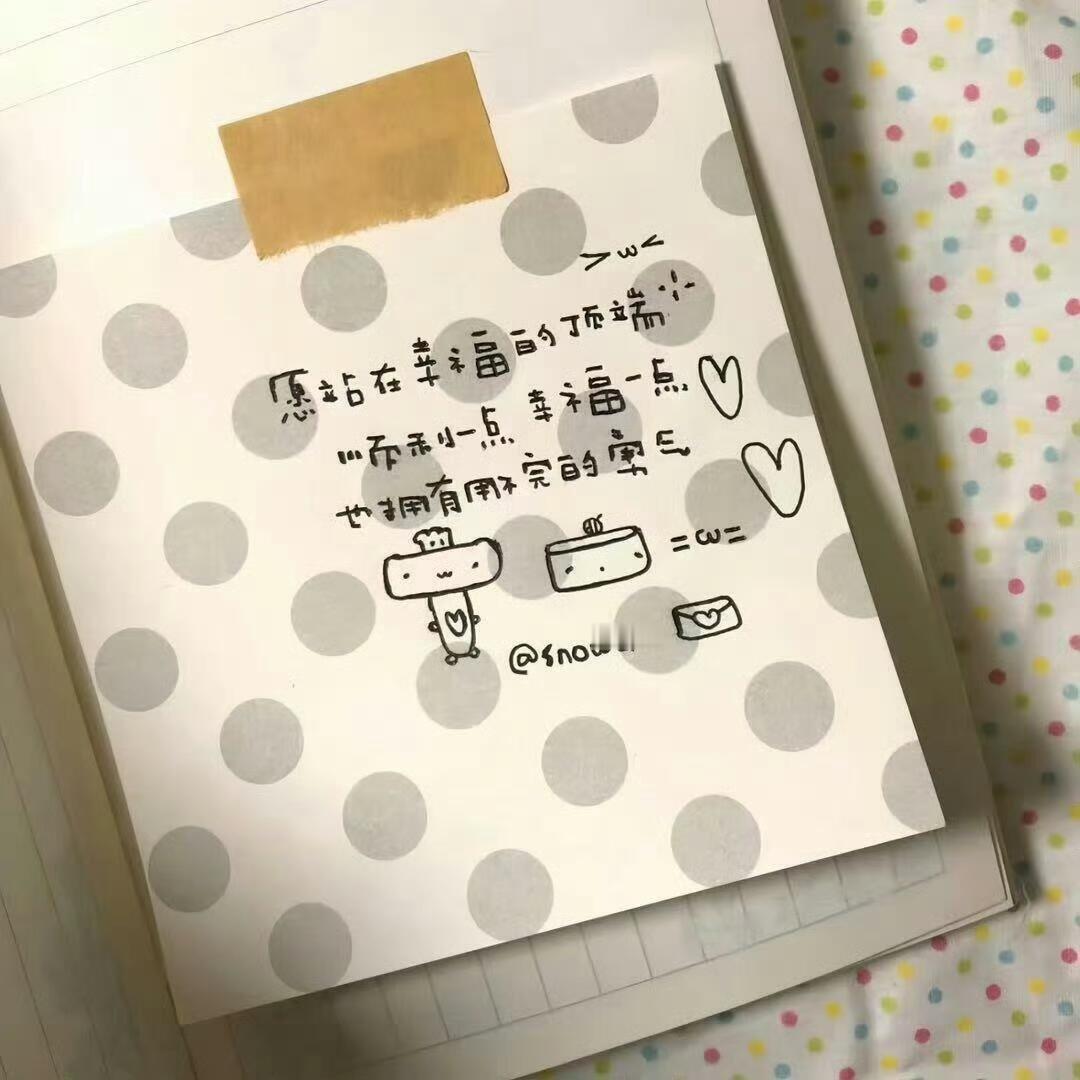 >w<
愿站在幸福的顶端
顺利一点 幸福一点
也拥有用不完的勇气
=ω=
@snow